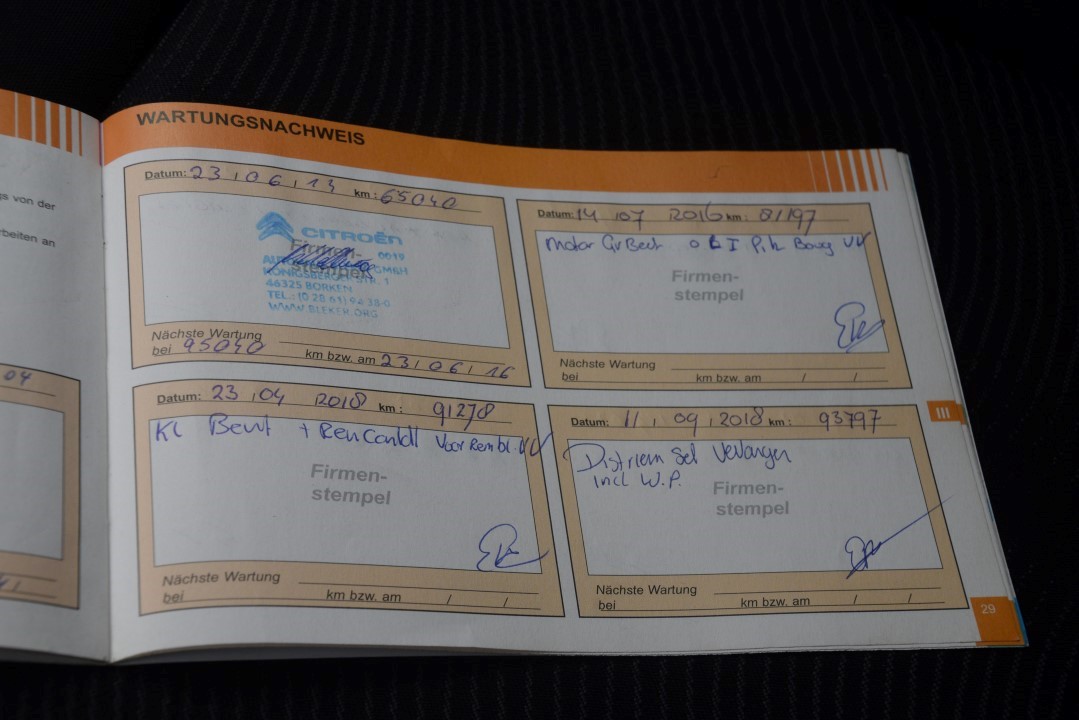 gs von der
rbeiten an
04
WARTUNGSNACHWEIS
Datum: 23 / 06 / 13 km: 65040
CITROËN
Firmen-
0019
stempel
GMBH
KÖNIGSBERGER STR. 1
46325 BORKEN
TEL.: (0 28 61) 94 38-0
WWW.BLEKER.ORG
Nächste Wartung
bei 95040 km bzw. am 23/06/16
Datum: 14 07 2016 km: 81197
motor
Firmen-
stempel
Nächste Wartung
bei km bzw. am / /
Datum: 23 / 04 2018 km: 91278
KL Beurt +
Firmen-
stempel
Nächste Wartung
bei km bzw. am / /
Datum: 11 / 09 / 2018 km: 93797
Set Vervangen
incl W.P.
Firmen-
stempel
Nächste Wartung
bei km bzw. am / /
III
29